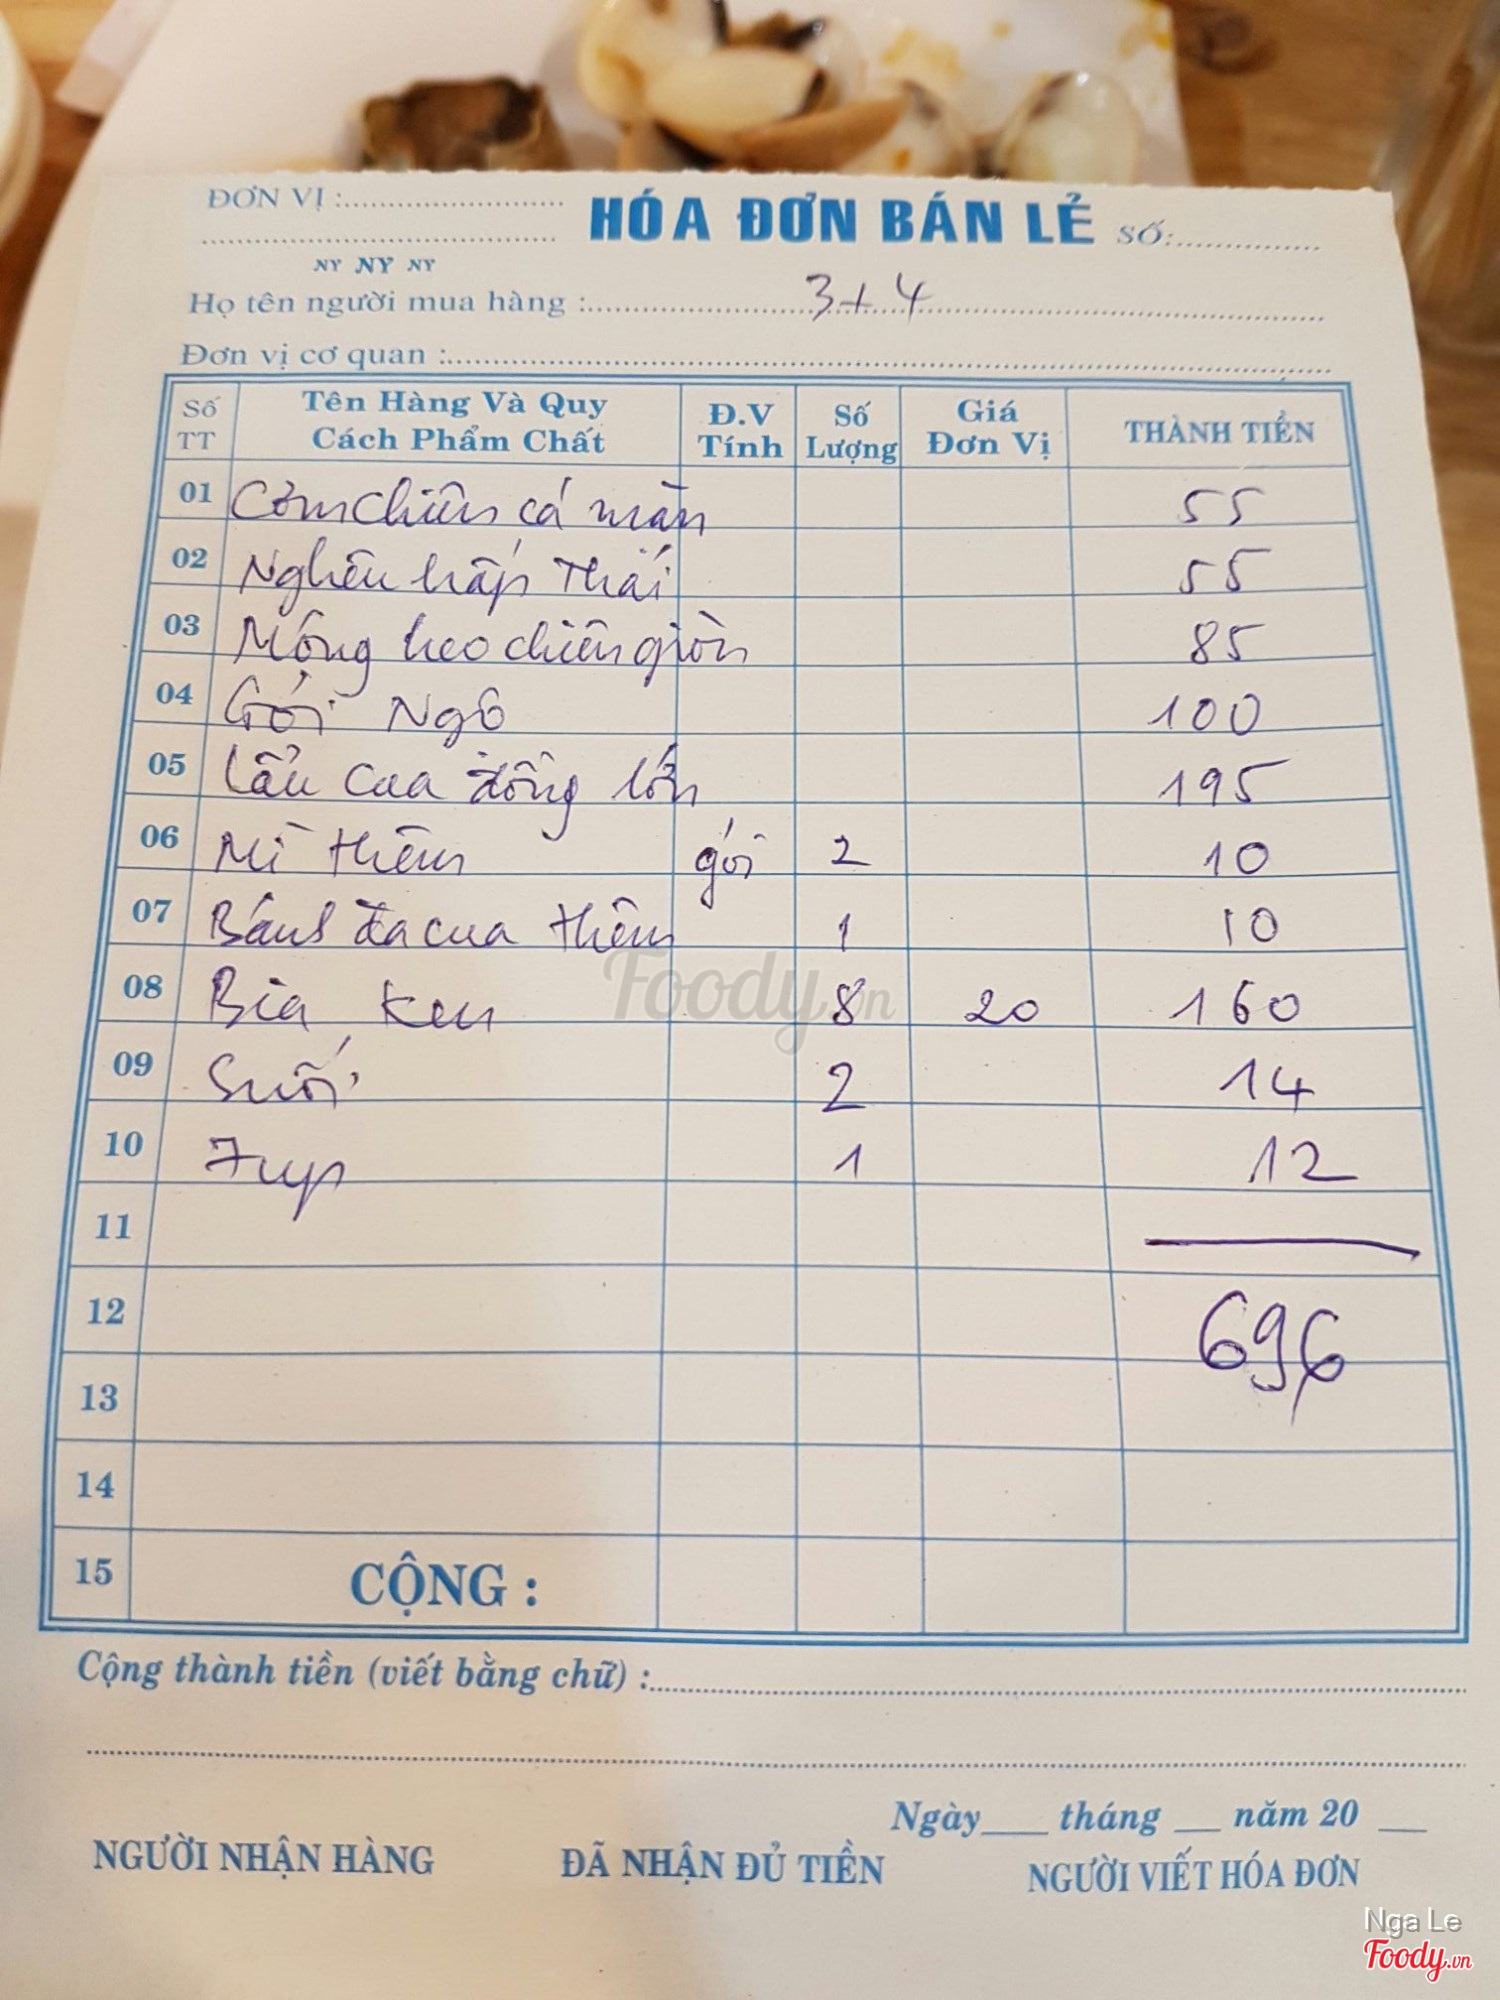 ĐƠN VỊ :
HÓA ĐƠN BÁN LẺ SỐ:
NY NY NY
Họ tên người mua hàng : 3+4
Đơn vị cơ quan :
Số TT Tên Hàng Và Quy Cách Phẩm Chất Đ.V Tính Số Lượng Giá Đơn Vị THÀNH TIỀN
01 Cơm chiên cá mặn 55
02 Nghêu hấp Thái 55
03 Mõng heo chiên giòn 85
04 Gỏi Ngô 100
05 Lẩu cua đồng lớn 195
06 Mì thêm gói 2 10
07 Bánh đa cua thêm 1 10
08 Bia Ken 8 20 160
09 Suối 2 14
10 7up 1 12
11
12 696
13
14
15 CỘNG :
Cộng thành tiền (viết bằng chữ) :
Ngày___ tháng ___ năm 20 ___
NGƯỜI NHẬN HÀNG ĐÃ NHẬN ĐỦ TIỀN NGƯỜI VIẾT HÓA ĐƠN
Foody.vn
Nga Le
Foody.vn